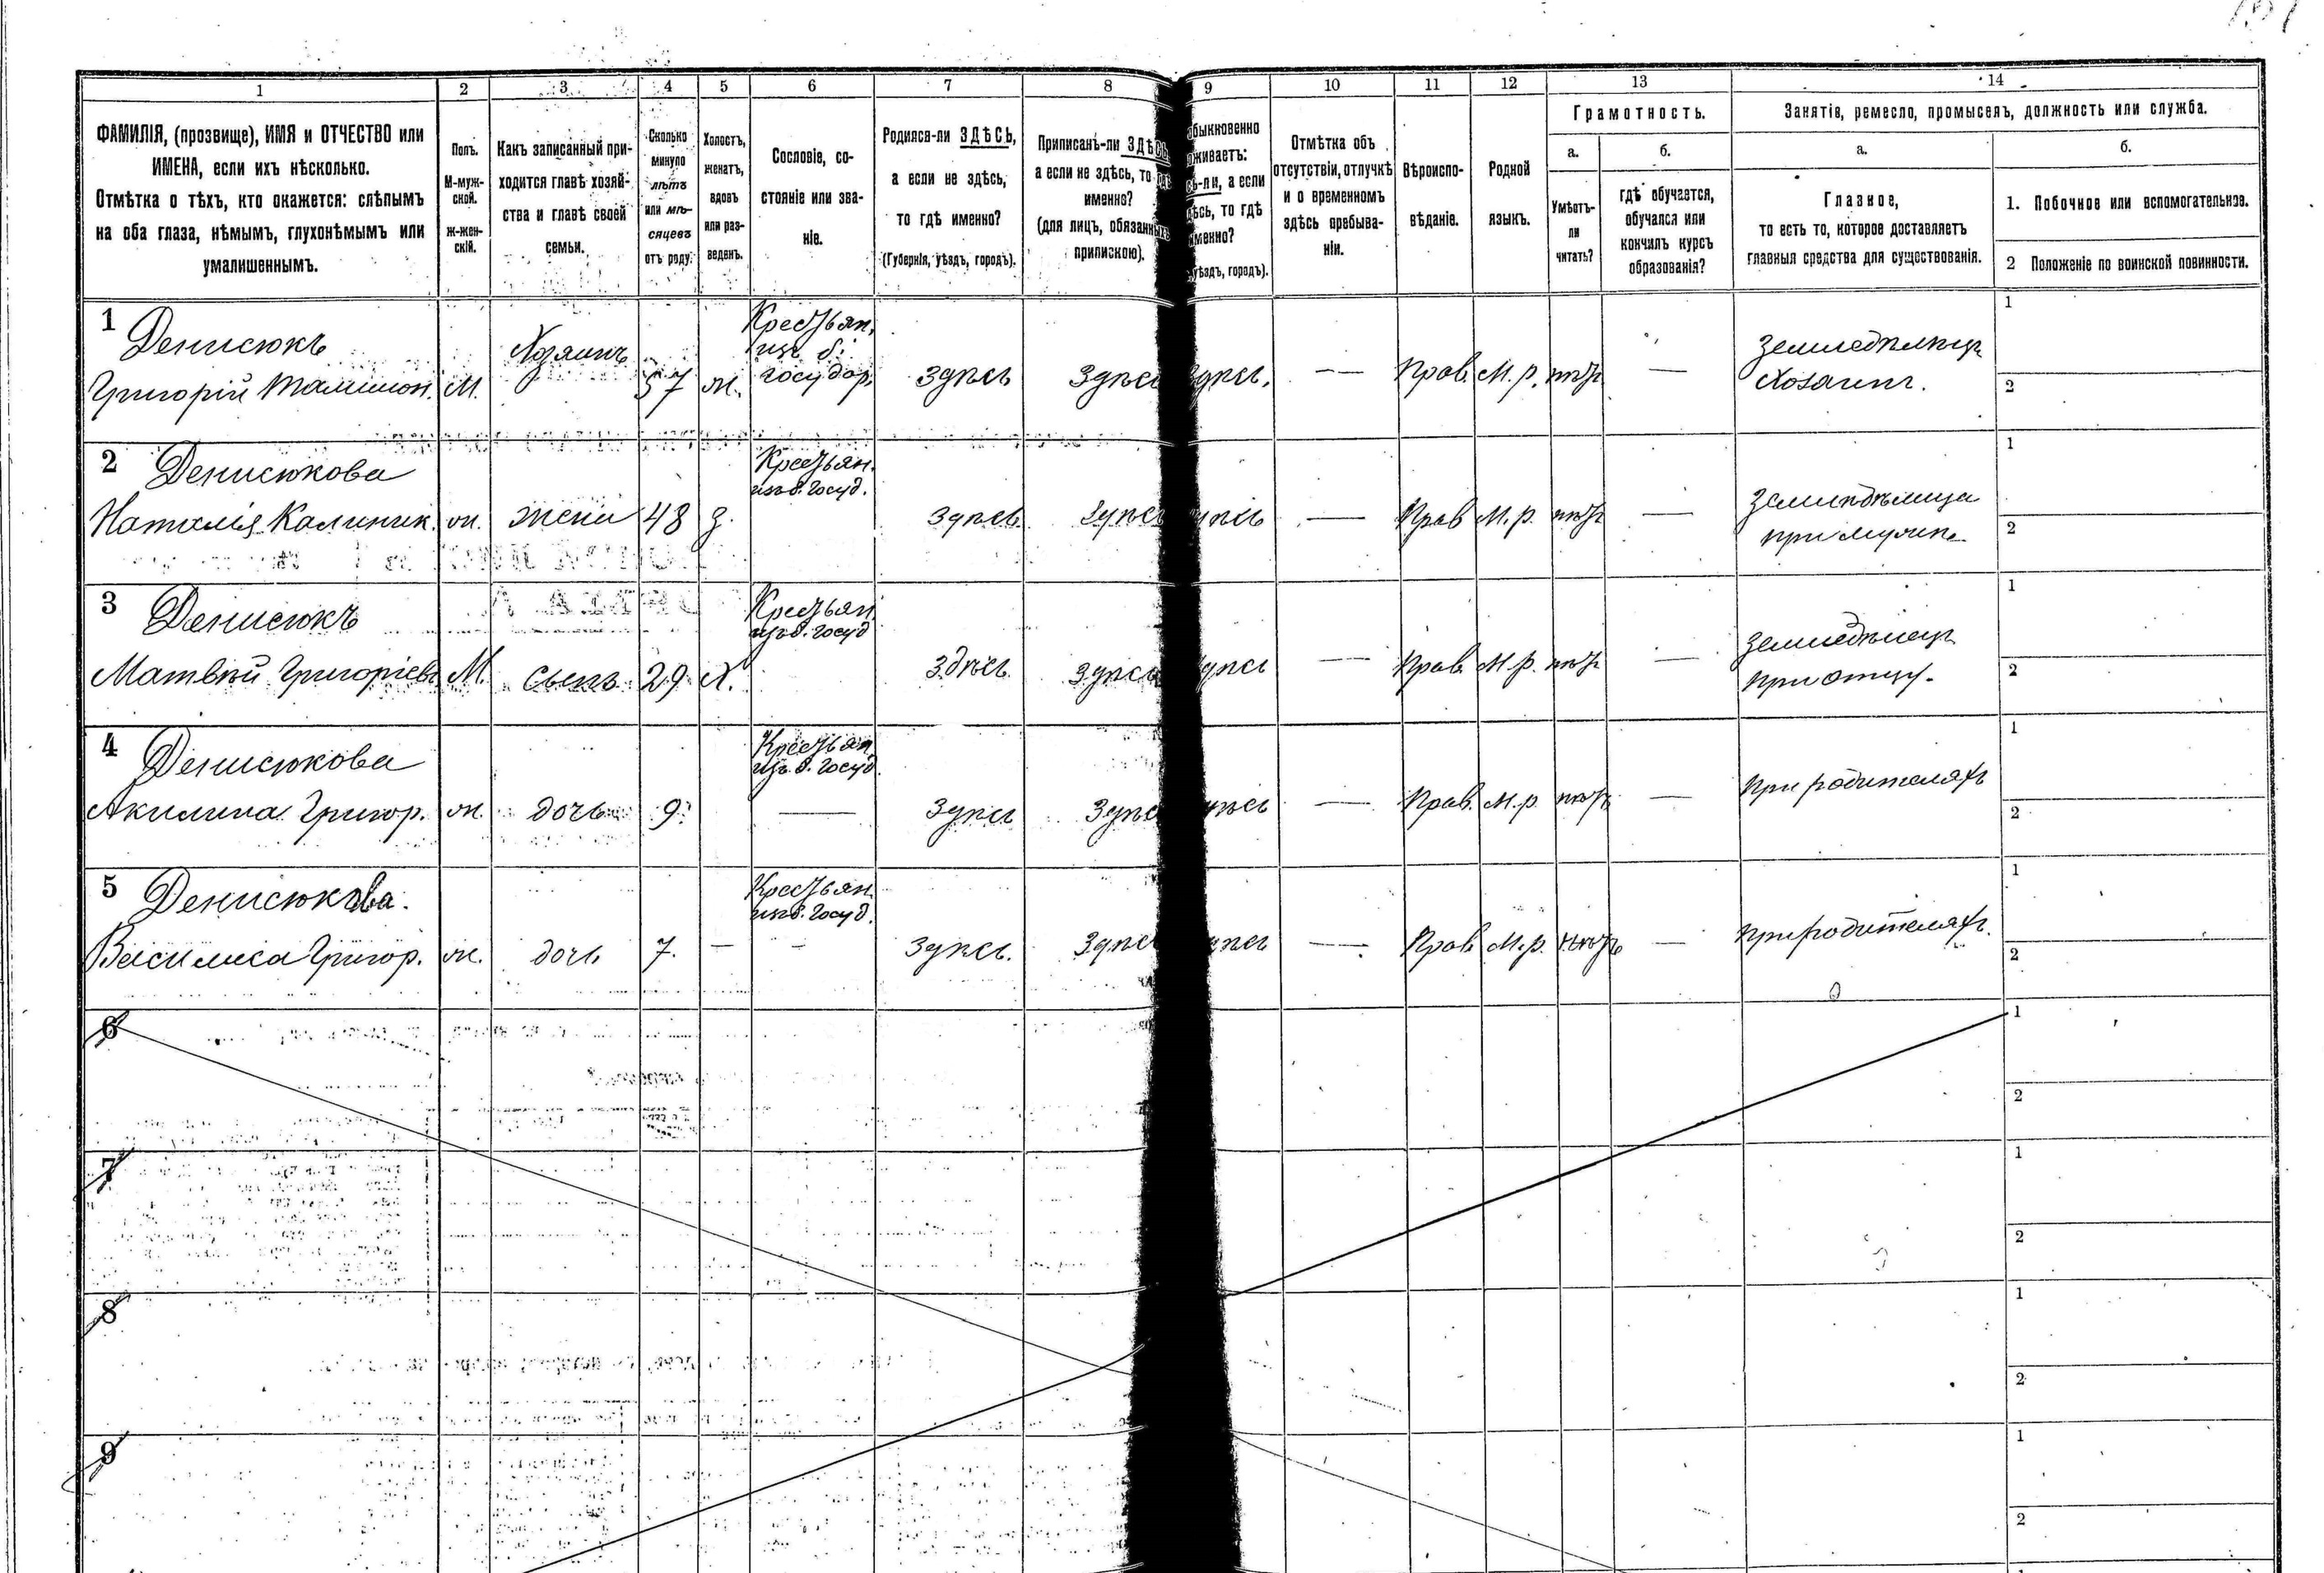 1 2 3 4 5 6 7 8 9 10 11 12 13 14
ФАМИЛІЯ, (прозвище), ИМЯ и ОТЧЕСТВО или
ИМЕНА, если ихъ нѣсколько.
Отмѣтка о тѣхъ, кто окажется: слѣпымъ
на оба глаза, нѣмымъ, глухонѣмымъ или
умалишеннымъ.
Полъ.
М-муж-
ской.
ж-жен-
скій.
Какъ записанный при-
ходится главѣ хозяй-
ства и главѣ своей
семьи.
Сколько
минуло
лѣтъ
или мѣ-
сяцевъ
отъ роду.
Холостъ,
женатъ,
вдовъ
или раз-
веденъ.
Сословіе, со-
стояніе или зва-
ніе.
Родился-ли ЗДѢСЬ,
а если не здѣсь,
то гдѣ именно?
(Губернія, уѣздъ, городъ).
Приписанъ-ли ЗДѢСЬ
а если не здѣсь, то гдѣ
именно?
(для лицъ, обязанныхъ
припискою).
быкновенно
оживаетъ:
сь-ли, а если
ѣсь, то гдѣ
именно?
уѣздъ, городъ).
Отмѣтка объ
отсутствіи, отлучкѣ
и о временномъ
здѣсь пребыва-
ніи.
Вѣроиспо-
вѣданіе.
Родной
языкъ.
Грамотность.
а.
Умѣетъ-
ли
читать?
б.
гдѣ обучается,
обучался или
кончилъ курсъ
образованія?
Занятіе, ремесло, промыселъ, должность или служба.
а.
Главное,
то есть то, которое доставляетъ
главныя средства для существованія.
б.
1. Побочное или вспомогательное.
2 Положеніе по воинской повинности.
1 Денисюкъ Хозяинъ Крестьян. изъ б. государ. Земледѣлецъ 1
Григорій М. 57 ж. здѣсь здѣсь здѣсь. — Прав. М. р. нѣтъ — Хозяинъ. 2
2 Денисюкова Крестьян. изъ б. Госуд. 1
Наталія Калиник. ж. жена 48 з. здѣсь здѣсь — Прав М. р. нѣтъ — при мужѣ 2
3 Денисюкъ Крестьян изъ б. Госуд Земледѣлецъ 1
Матвѣй Григоріевъ М. сынъ 29 х. здѣсь здѣсь — Прав. М. р. нѣтъ — при отцу. 2
4 Денисюкова Крестьян изъ б. Госуд 1
Акилина Григор. ж. дочь 9. — здѣсь здѣсь — Прав. М. р. нѣтъ — при родителяхъ 2
5 Денисюкова. Крестьян. изъ б. Госуд. 1
Василиса Григор. ж. дочь 7. — — здѣсь. здѣсь — Прав М. р. нѣтъ — при родителяхъ. 2
6 1
2
7 1
2
8 1
2
9 1
2